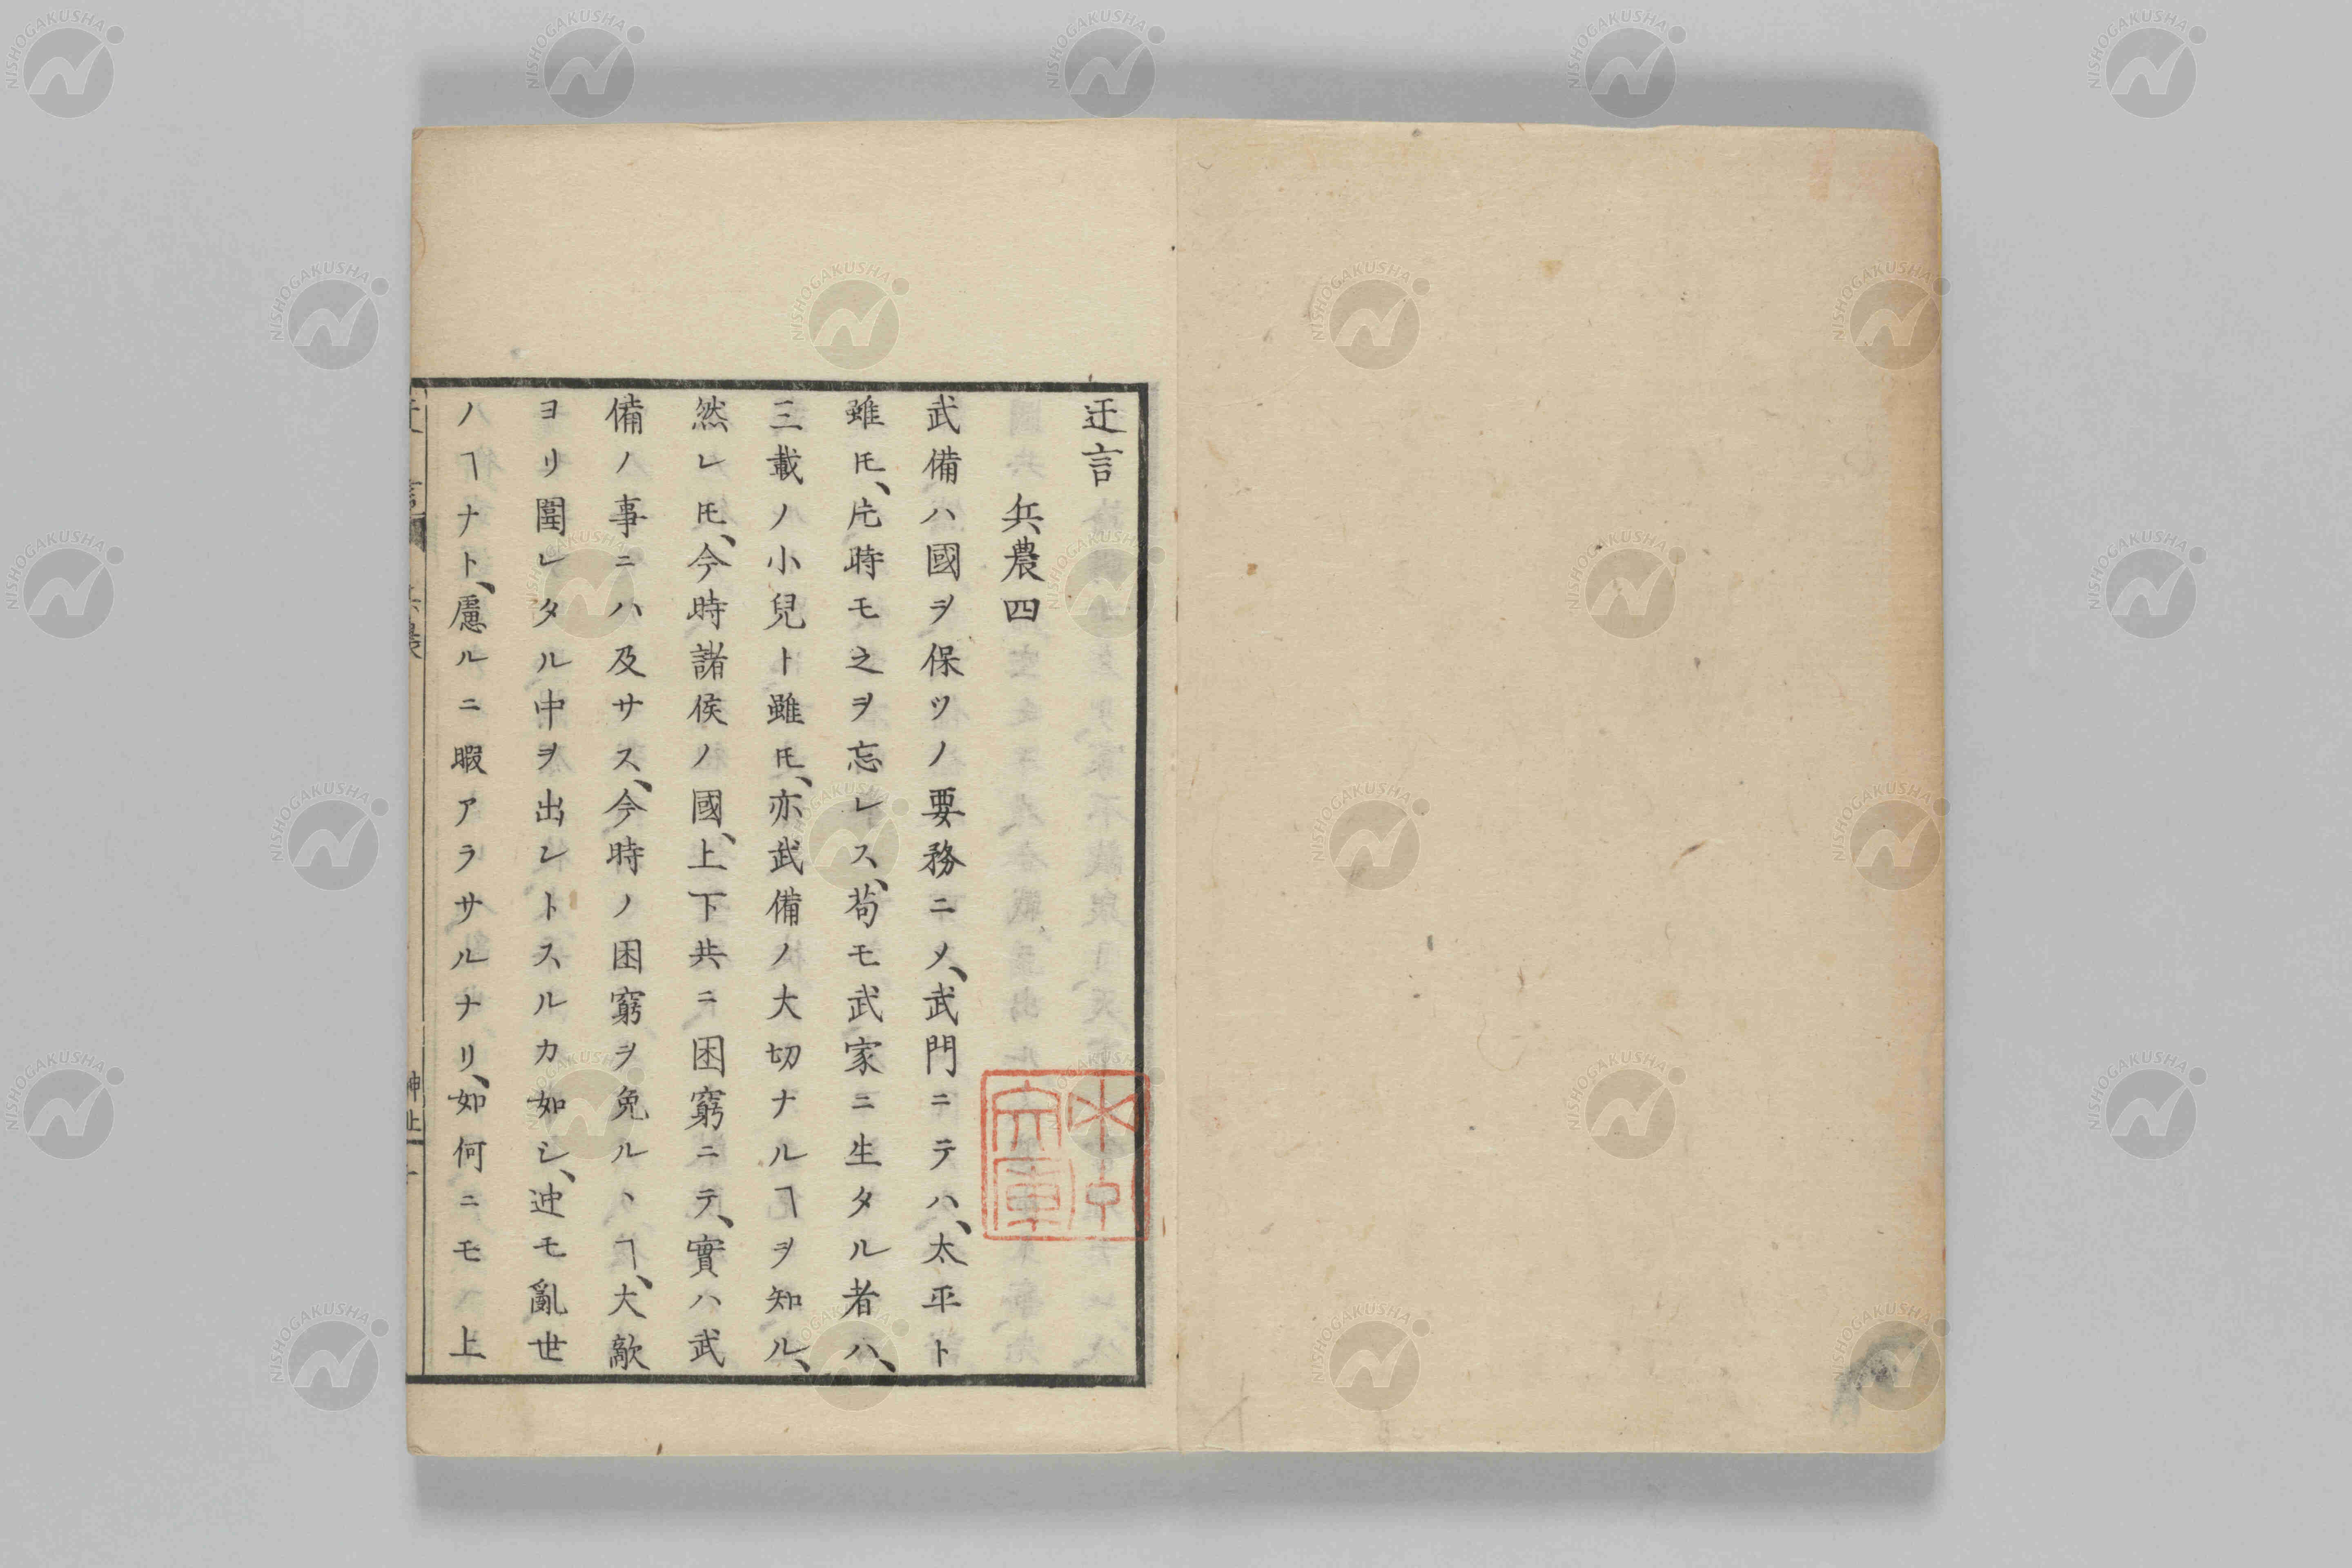 迂言
兵農四
武備ハ國ヲ保ツノ要務ニメ、武門ニテハ、太平ト
雖𪜈、片時モ之ヲ忘レス、苟モ武家ニ生タル者ハ、
三載ノ小兒ト雖𪜈、亦武備ノ大切ナルヿヲ知ル、
然レ𪜈、今時諸侯ノ國、上下共ニ困窮ニテ、實ハ武
備ノ事ニハ及サス、今時ノ困窮ヲ免ルヽヿ、大敵
ヨリ圍レタル中ヲ出レトスルカ如シ、迚モ亂世
ノヿナト、慮ルニ暇アラサルナリ、如何ニモ上
NISHOGAKUSHA